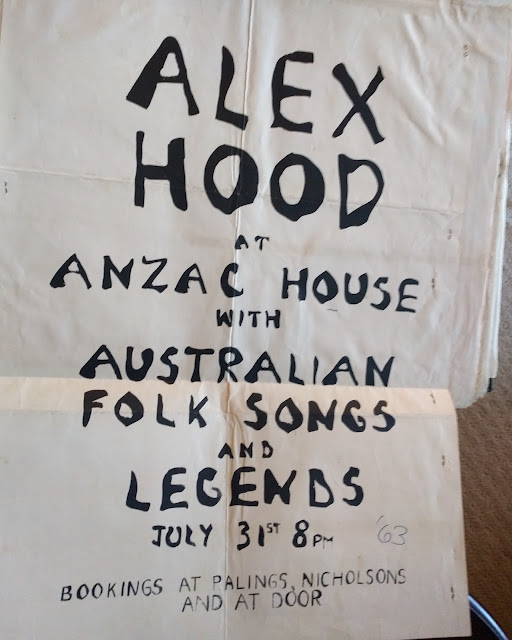 ALEX
HOOD
AT
ANZAC HOUSE
WITH
AUSTRALIAN
FOLK SONGS
AND
LEGENDS
JULY 31ST 8PM '63
BOOKINGS AT PALINGS, NICHOLSONS
AND AT DOOR